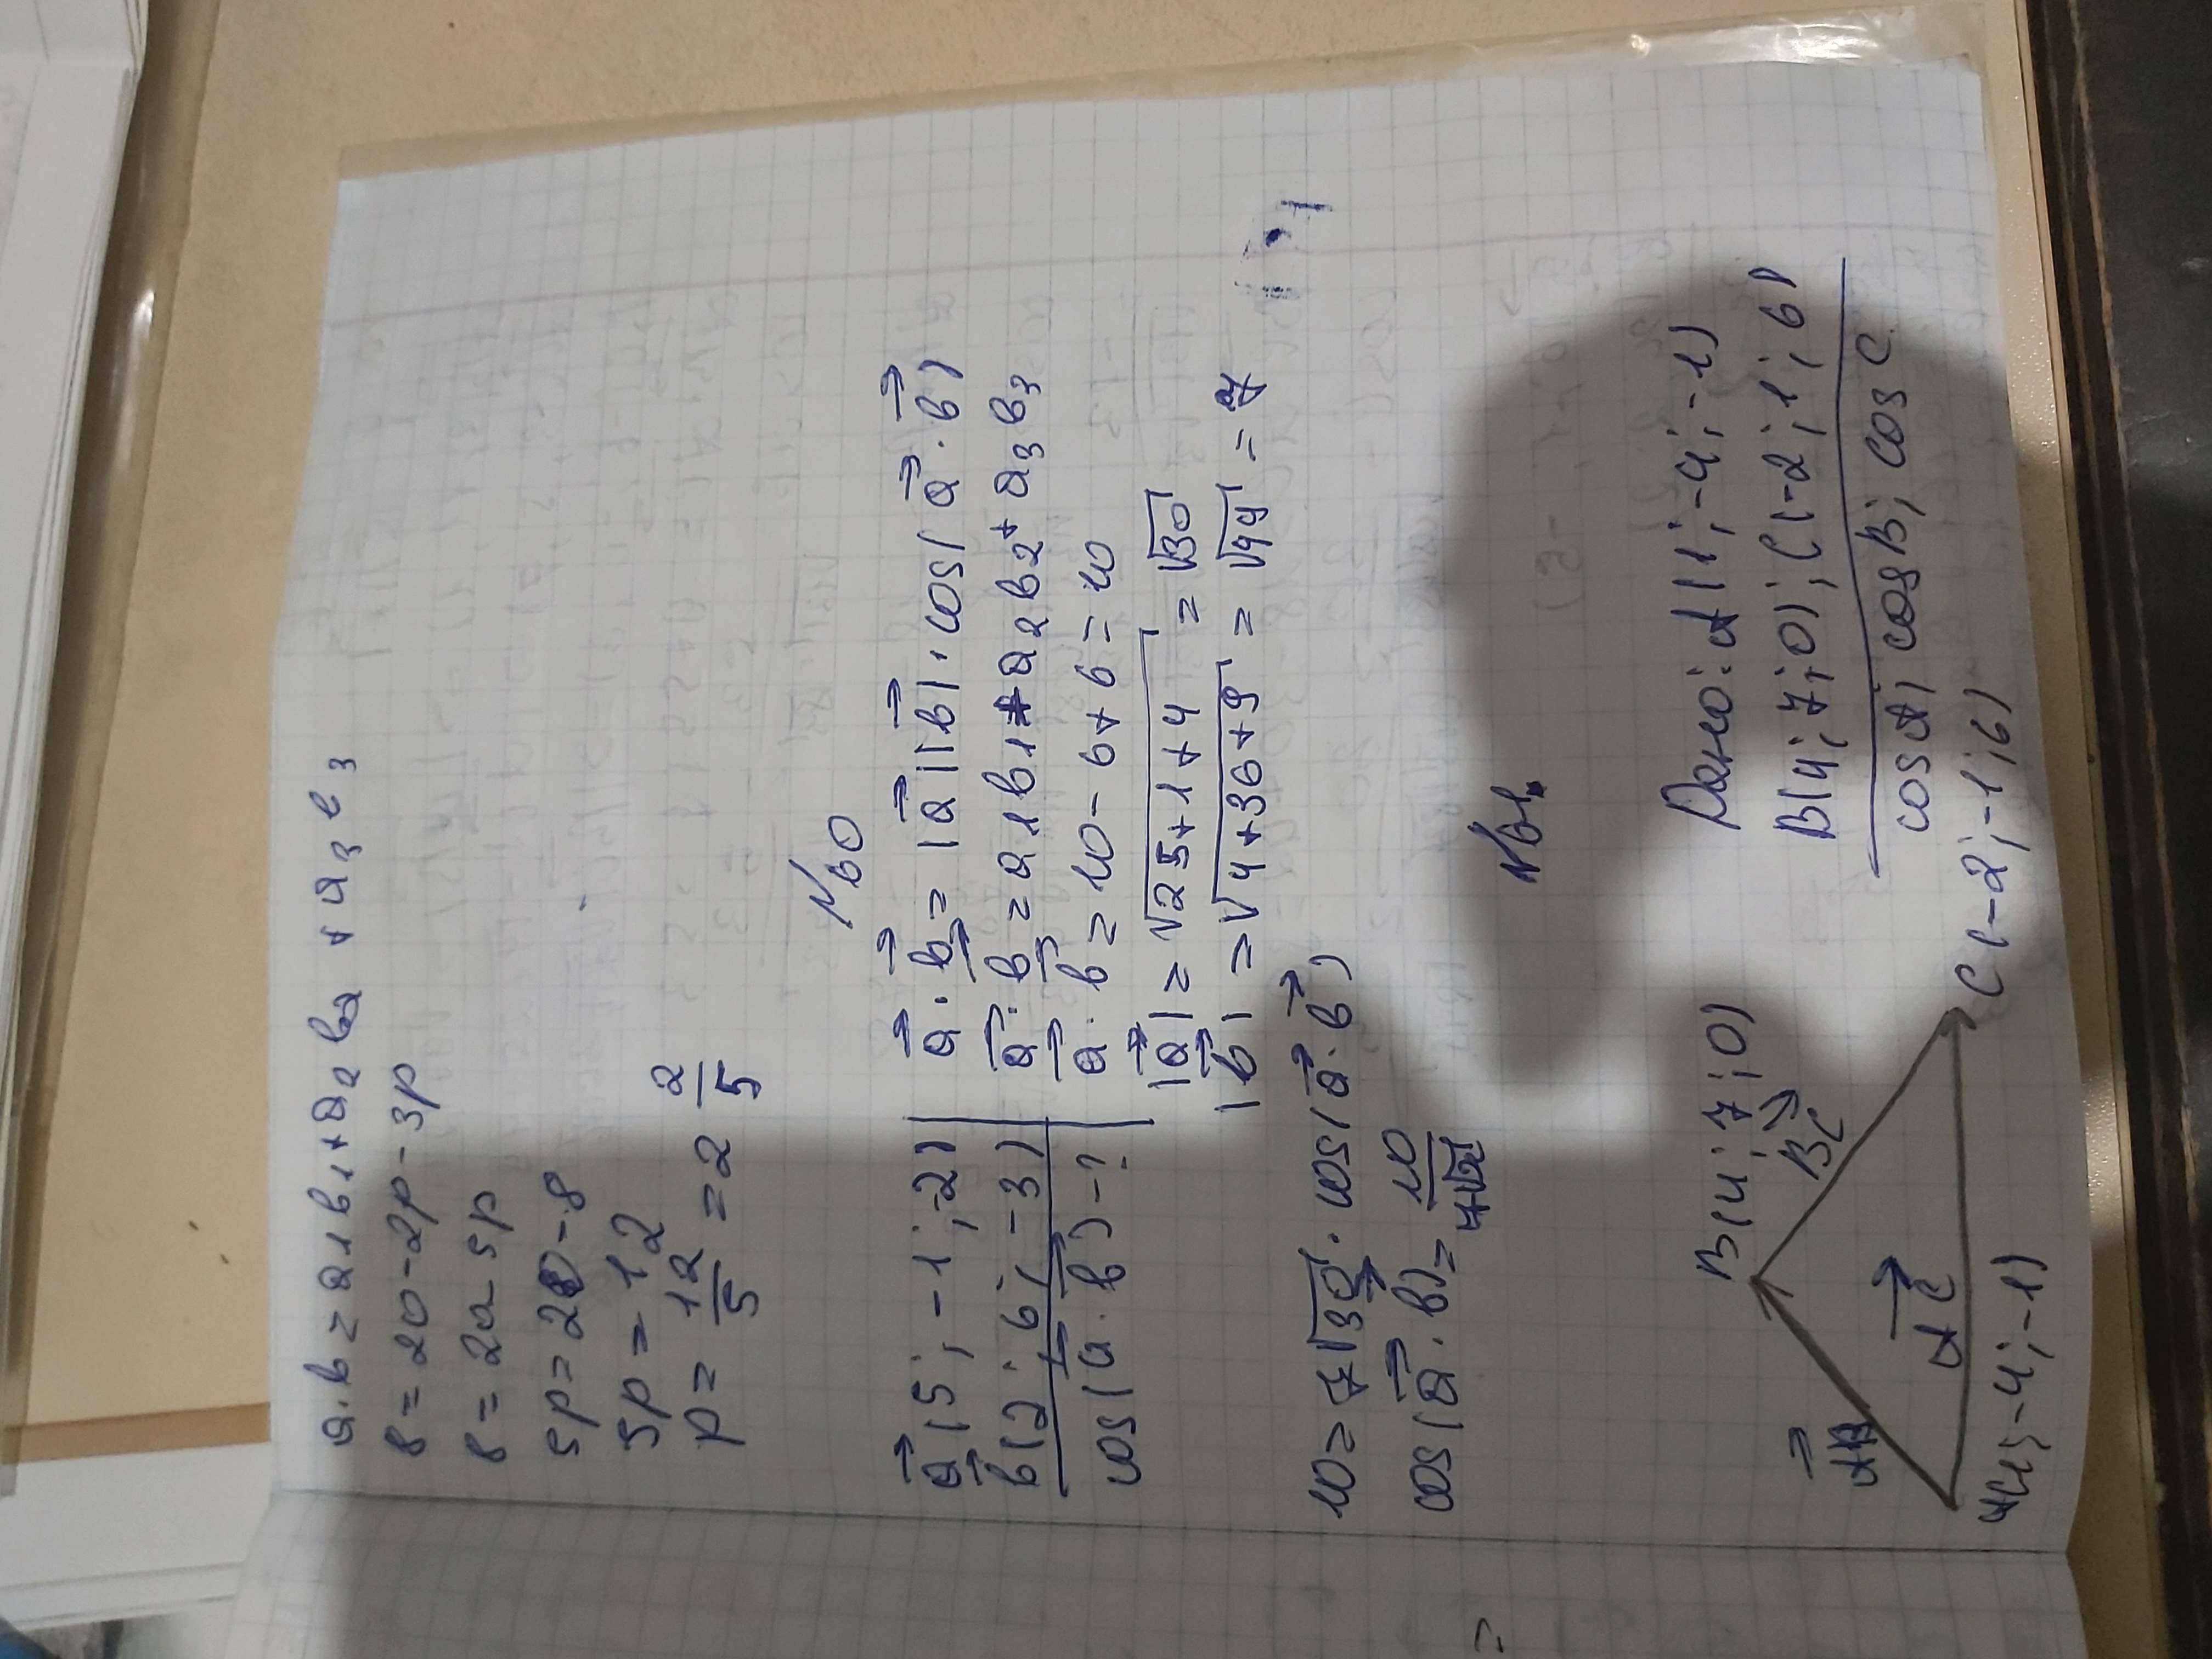 a·b = a₁b₁+a₂b₂ + a₃b₃
8 = 20-2p-3p
8 = 20-5p
5p = 20-8
5p = 12
p = 12/5 = 2 2/5
N60
a⃗(5; -1; -2)
b⃗(2; 6; -3)
cos(a⃗·b⃗)-?
a⃗·b⃗ = |a⃗||b⃗|·cos(a⃗·b⃗)
a⃗·b⃗ = a₁b₁+a₂b₂+a₃b₃
a⃗·b⃗ = 10-6+6=10
|a⃗| = √25+1+4 = √30
|b⃗| = √4+36+9 = √49 = 7
10 = 7√30·cos(a⃗·b⃗)
cos(a⃗·b⃗) = 10/7√30
N61.
Дано: A(1; -4; -1)
B(4; 7; 0); C(-2; 1; 6)
cos A; cos B; cos C
B(4; 7; 0)
AB⃗
BC⃗
AC⃗
A(1; -4; -1)
C(-2; -1; 6)
=